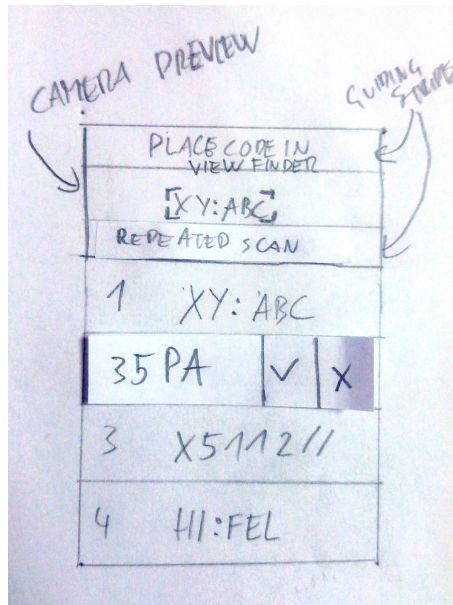 CAMERA PREVIEW
GUIDING
STRIPE
PLACE CODE IN
VIEW FINDER
XY:ABC
REPEATED SCAN
1 XY: ABC
35PA ✓ X
3 X5112//
4 HI:FEL